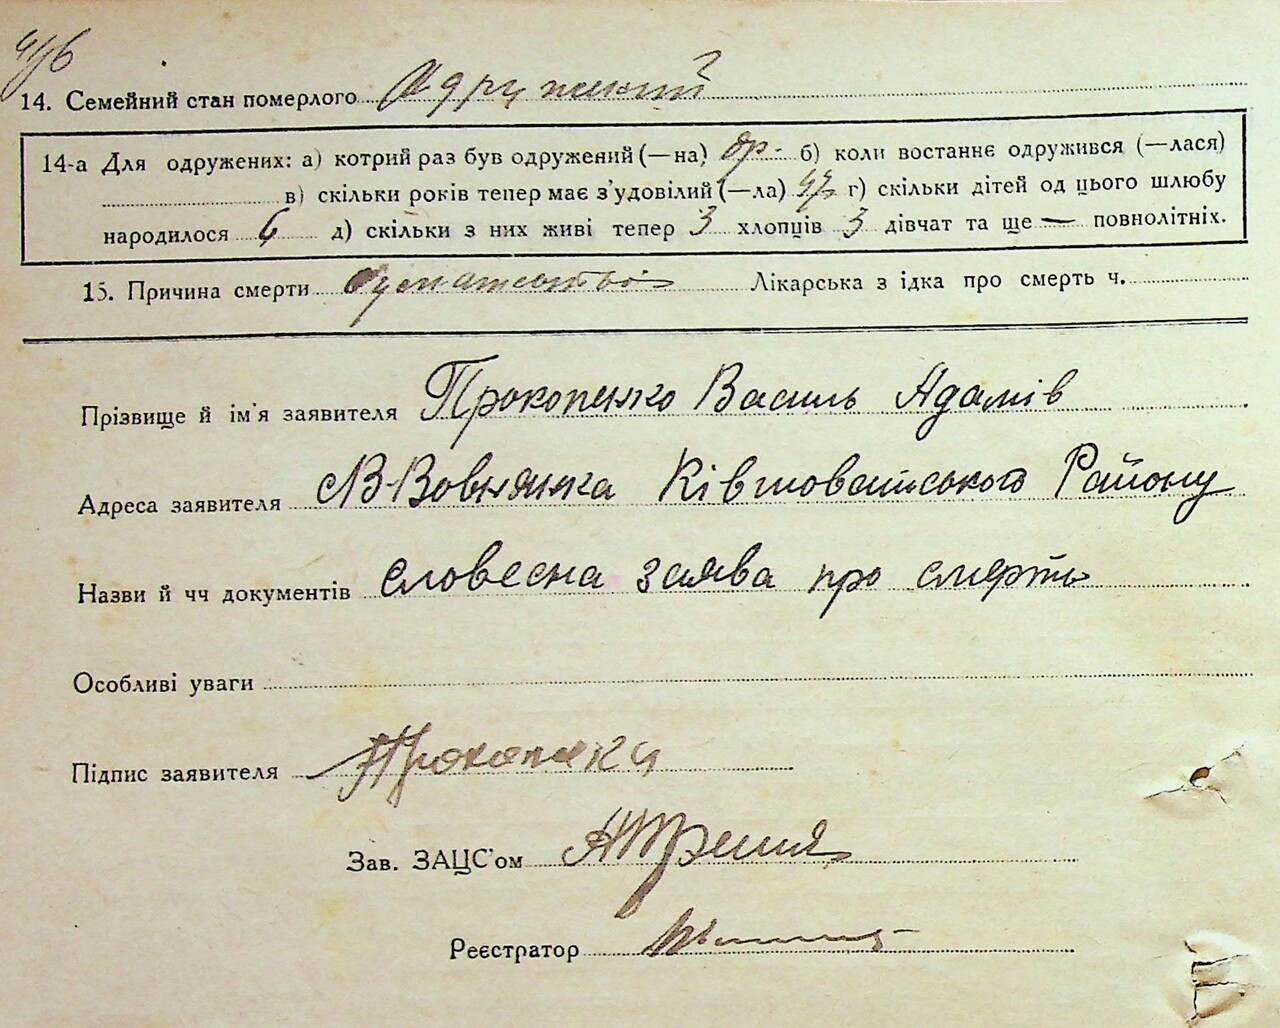 14. Семейний стан померлого Одружений
14-а Для одружених: а) котрий раз був одружений (—на) др. б) коли востаннє одружився (—лася)
в) скільки років тепер має з’удовілий (—ла) 47 г) скільки дітей од цього шлюбу
народилося 6 д) скільки з них живі тепер 3 хлопців 3 дівчат та ще — повнолітніх.
15. Причина смерти Лікарська з ідка про смерть ч.
Прізвище й ім’я заявителя Прокопенко Василь Адамів
Адреса заявителя В-Вовнянка Ківшоватського Району
Назви й чч документів словесна заява про смерть
Особливі уваги
Підпис заявителя
Зав. ЗАЦС’ом
Реєстратор